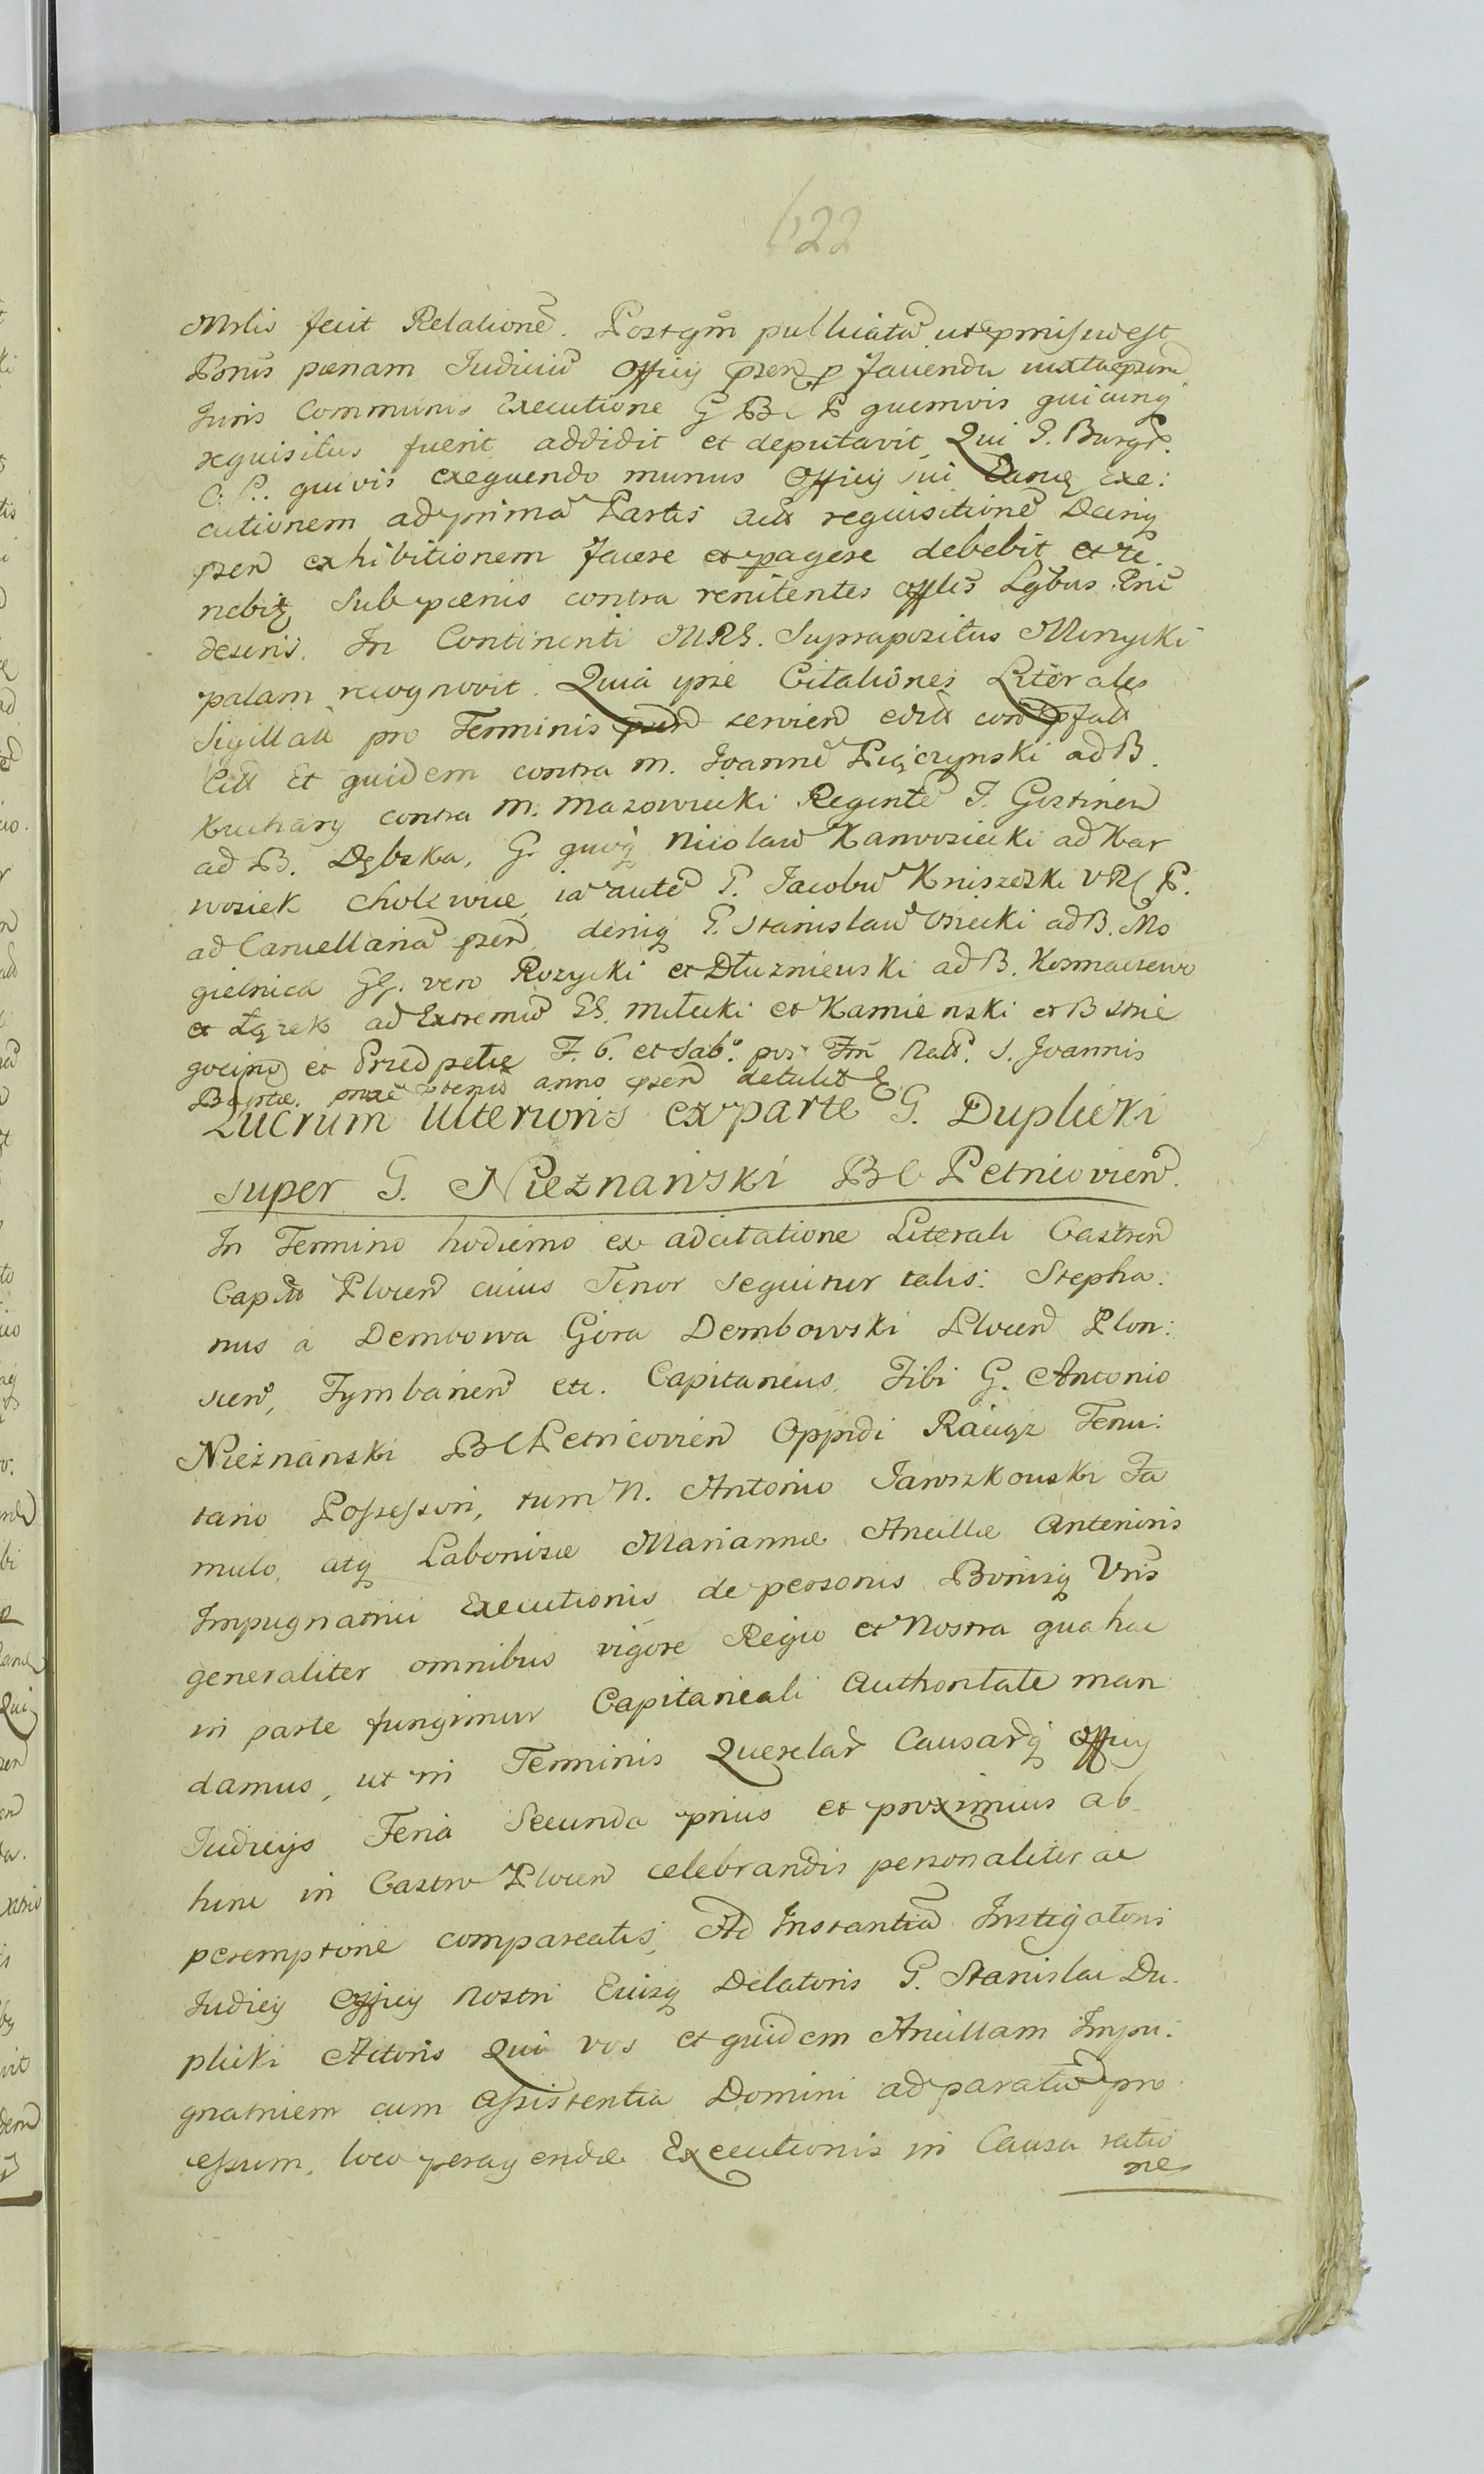 622
Mrlis fecit Relatione. Postqm publicata ut pmisu est
Bonis pœnam Judiciu Officij psen p favendu iuxta
Juris Communis Executione G B C P quemvis quicunq
requisitus fuerit addidit et deputavit, Qui G. Burgr.
C. P. quivis exequendo munus Officij sui Exe:
cutionem ad prima Partis requisitione Decriq
psen exhibitionem facere et pagere debebit et te
nebit, sub pœnis contra renitentes Lgbus
descris. In Continenti MRS. Suprapositus Minycki
palam recognovit. Quia ipse Citationes Literales
Sigillatt pro Terminis psen servien
Citt Et quidem contra M. Joanne Pięczynski ad B.
Kuchary contra M. Mazowiecki Regente T. Gostinen
ad B. Dębska, G. quoq Nicolaw Karwosiecki ad Kar
wosiek Cholewice, ia aute G. Jacobu Kniszeski V R C P.
ad Cancellaria psen, deniq G. Stanislaw Osiecki ad B. Mo
gielnica GG. vero Rozycki et Dłuzniewski ad B. Kosmaczewo
et Łązek ad Extremu GG. Miłucki et Kamienski et B Strie
gocino et Przedpełce F. 6. et Sab.o pos Fm Natt. S. Joannis
Baptæ. anno psen detulit
Lucrum Ulterioris ex parte G. Duplicki
super G. Nieznański B C Petricovien.
In Termino hodierno ex adcitatione Literali Castren
Capitt Plocen cuius Tenor sequitur talis: Stepha:
nus a Dembowa Góra Dembowski Plocen Plon:
scen, Tymbarien etc. Capitaneus, Tibi G. Antonio
Nieznanski B C Petricovien Oppidi Raciąz Tenu:
tario Possessori, tum N. Antonio Jaroszkowski Fa
mulo, atq Laboriosæ Mariannæ Ancillæ Anterioris
Impugnatrici Executionis de personis Bonisq Vris
generaliter omnibus vigore Regio et Nostra qua hac
in parte fungimur Capitaneali Authoritate man
damus, ut in Terminis Querelar Causarq Officij
Judicijs Feria Secunda prius et proximius ab
hinc in Castro Plocen celebrandis personaliter ac
peremptorie compareatis, Ad Instantia Instigatoris
Judicij Officij Nostri Eiusq Delatoris G. Stanislai Du.
plicki Actoris Qui vos et quidem Ancillam Impu:
gnatricem cum Assistentia Domini ad paratu pro
cessum, loco peragendæ Executionis in Causa ratio
ne